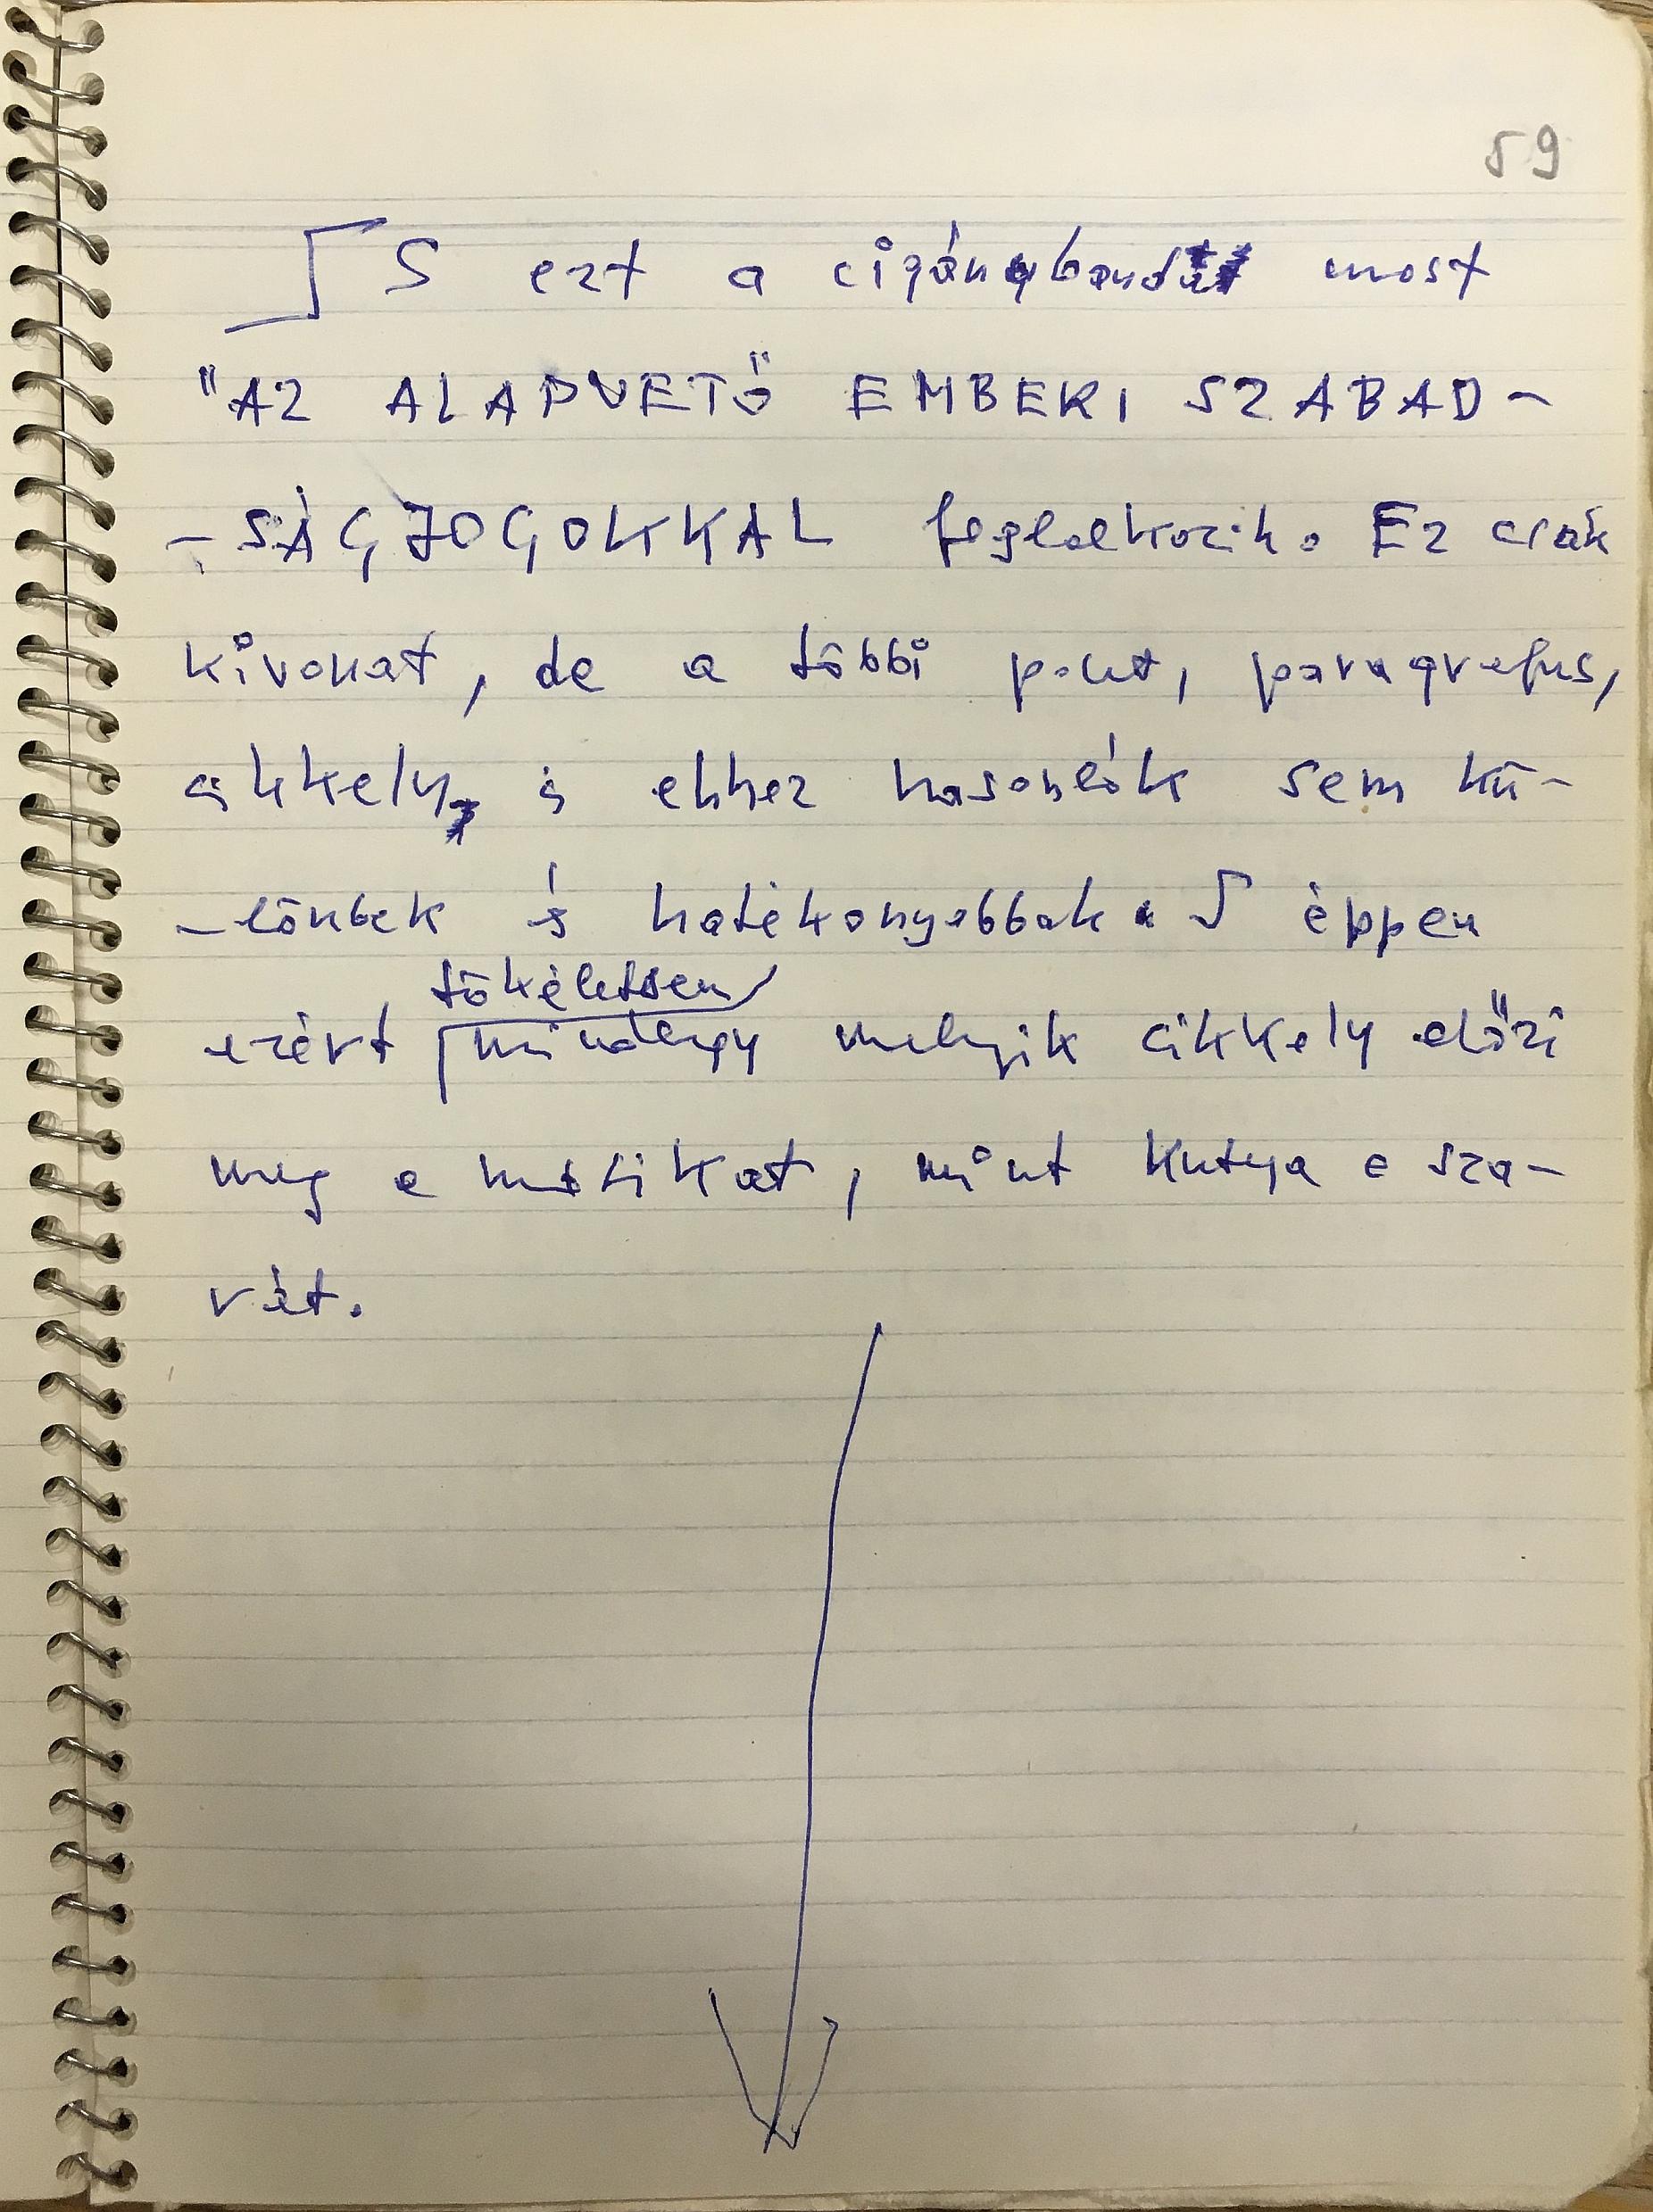 59
S ezt a cigánybandát most
"AZ ALAPVETŐ EMBERI SZABAD-
-SÁGJOGOKKAL foglalkozik. Ez csak
kivonat, de a többi pont, paragrafus,
cikkely, s ehhez hasonlók sem kü-
-lönbek és hatékonyabbak. S éppen
tökéletesen
ezért mindegy melyik cikkely előzi
meg a másikat, mint kutya a sza-
vát.